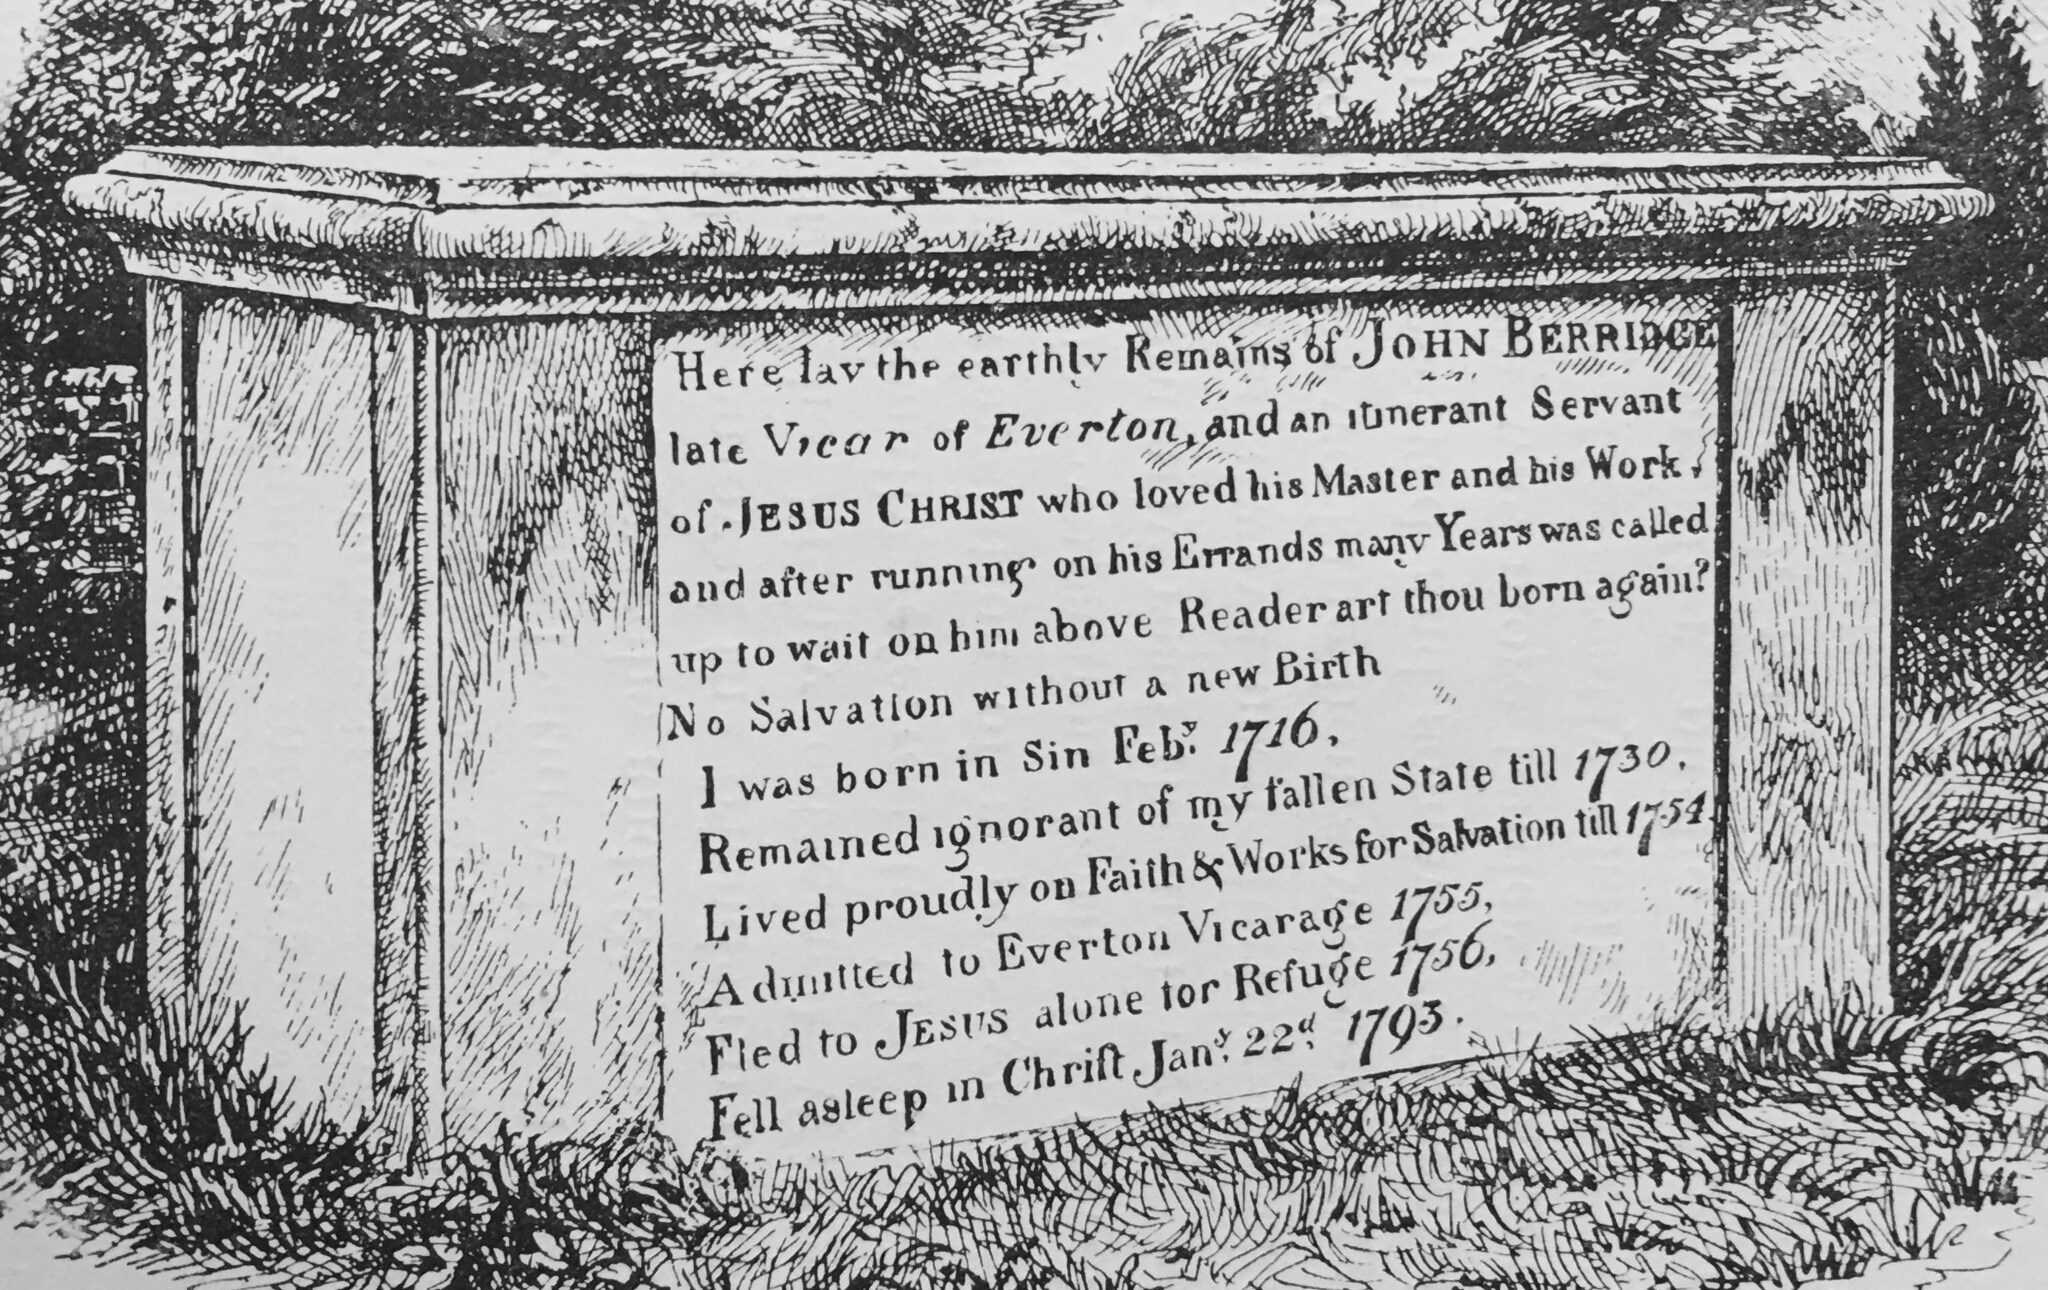 Here lay the earthly Remains of JOHN BERRIDGE
late Vicar of Everton, and an itinerant Servant
of JESUS CHRIST who loved his Master and his Work,
and after running on his Errands many Years was called
up to wait on him above Reader art thou born again?
No Salvation without a new Birth
I was born in Sin Feby. 1716,
Remained ignorant of my fallen State till 1730,
Lived proudly on Faith & Works for Salvation till 1754.
Admitted to Everton Vicarage 1755,
Fled to JESUS alone for Refuge 1756,
Fell asleep in Chriſt Jany. 22d, 1793.